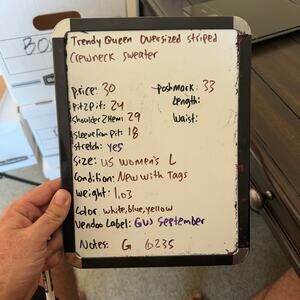 Trendy Queen Oversized striped
Crewneck sweater
price: 30
poshmark: 33
pit2pit: 24
Length:
Shoulder2Hem: 29
Waist:
Sleeve from pit: 18
stretch: yes
Size: US Women's L
Condition: New with Tags
Weight: 1.03
Color: white, blue, yellow
Vendoo Label: GWJ September
Notes: G 6235
BO